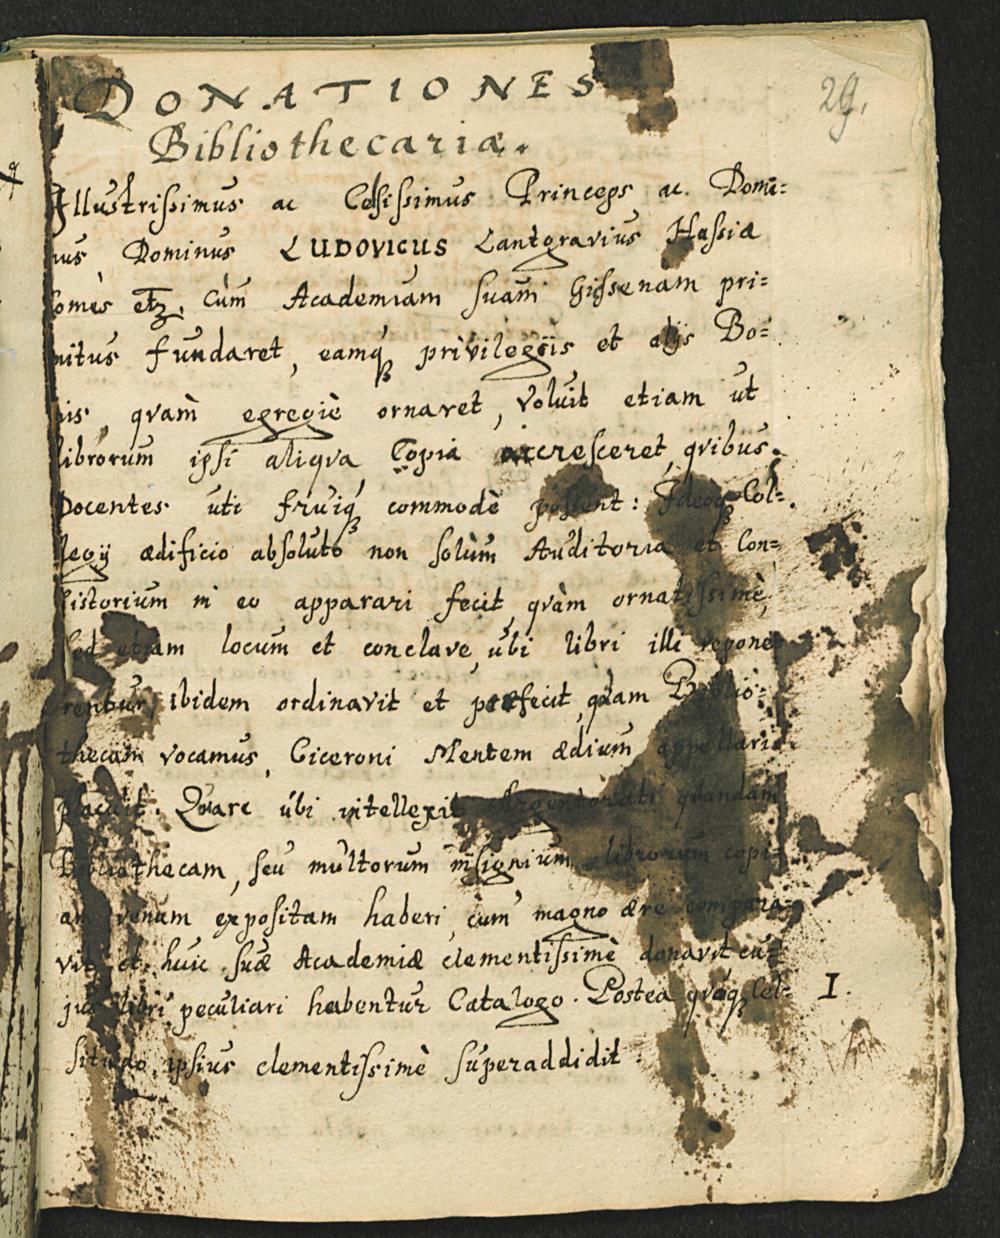 DONATIONES
Bibliothecariæ.
29.
Illustrissimus ac Celsissimus Princeps ac Domi=
nus Dominus LUDOVICUS Lantgravius Hassiæ
Comes etz. cùm Academiam suam Gissenam pri=
mitus fundaret, eamq́ꝫ privilegiis et alijs Bo=
nis, qvàm egregiè ornaret, voluit etiam ut
librorum ipsi aliqva Copia accresceret, qvibus
Docentes uti fruiq́ꝫ commodè possent: Ideoqꝫ Col=
legij ædificio absoluto non solùm Auditoria et Con=
sistorium in eo apparari fecit qvàm ornatissimè,
sed etiam locum et conclave, ubi libri illi repone=
rentur, ibidem ordinavit et perfecit, quam Biblio=
thecam vocamus, Ciceroni Mentem ædium appellari
placuit. Quare ubi intellexit Argentorati quandam
Bibliothecam, seu multorum insignium librorum copi=
am venam expositam haberi, cùm magno ære compara=
vit et huic suæ Academiæ clementissimè donavit cu=
jus libri peculiari habentur Catalogo. Postea qvoqꝫ Cel= I.
situdo ipsius clementissimè superaddidit: